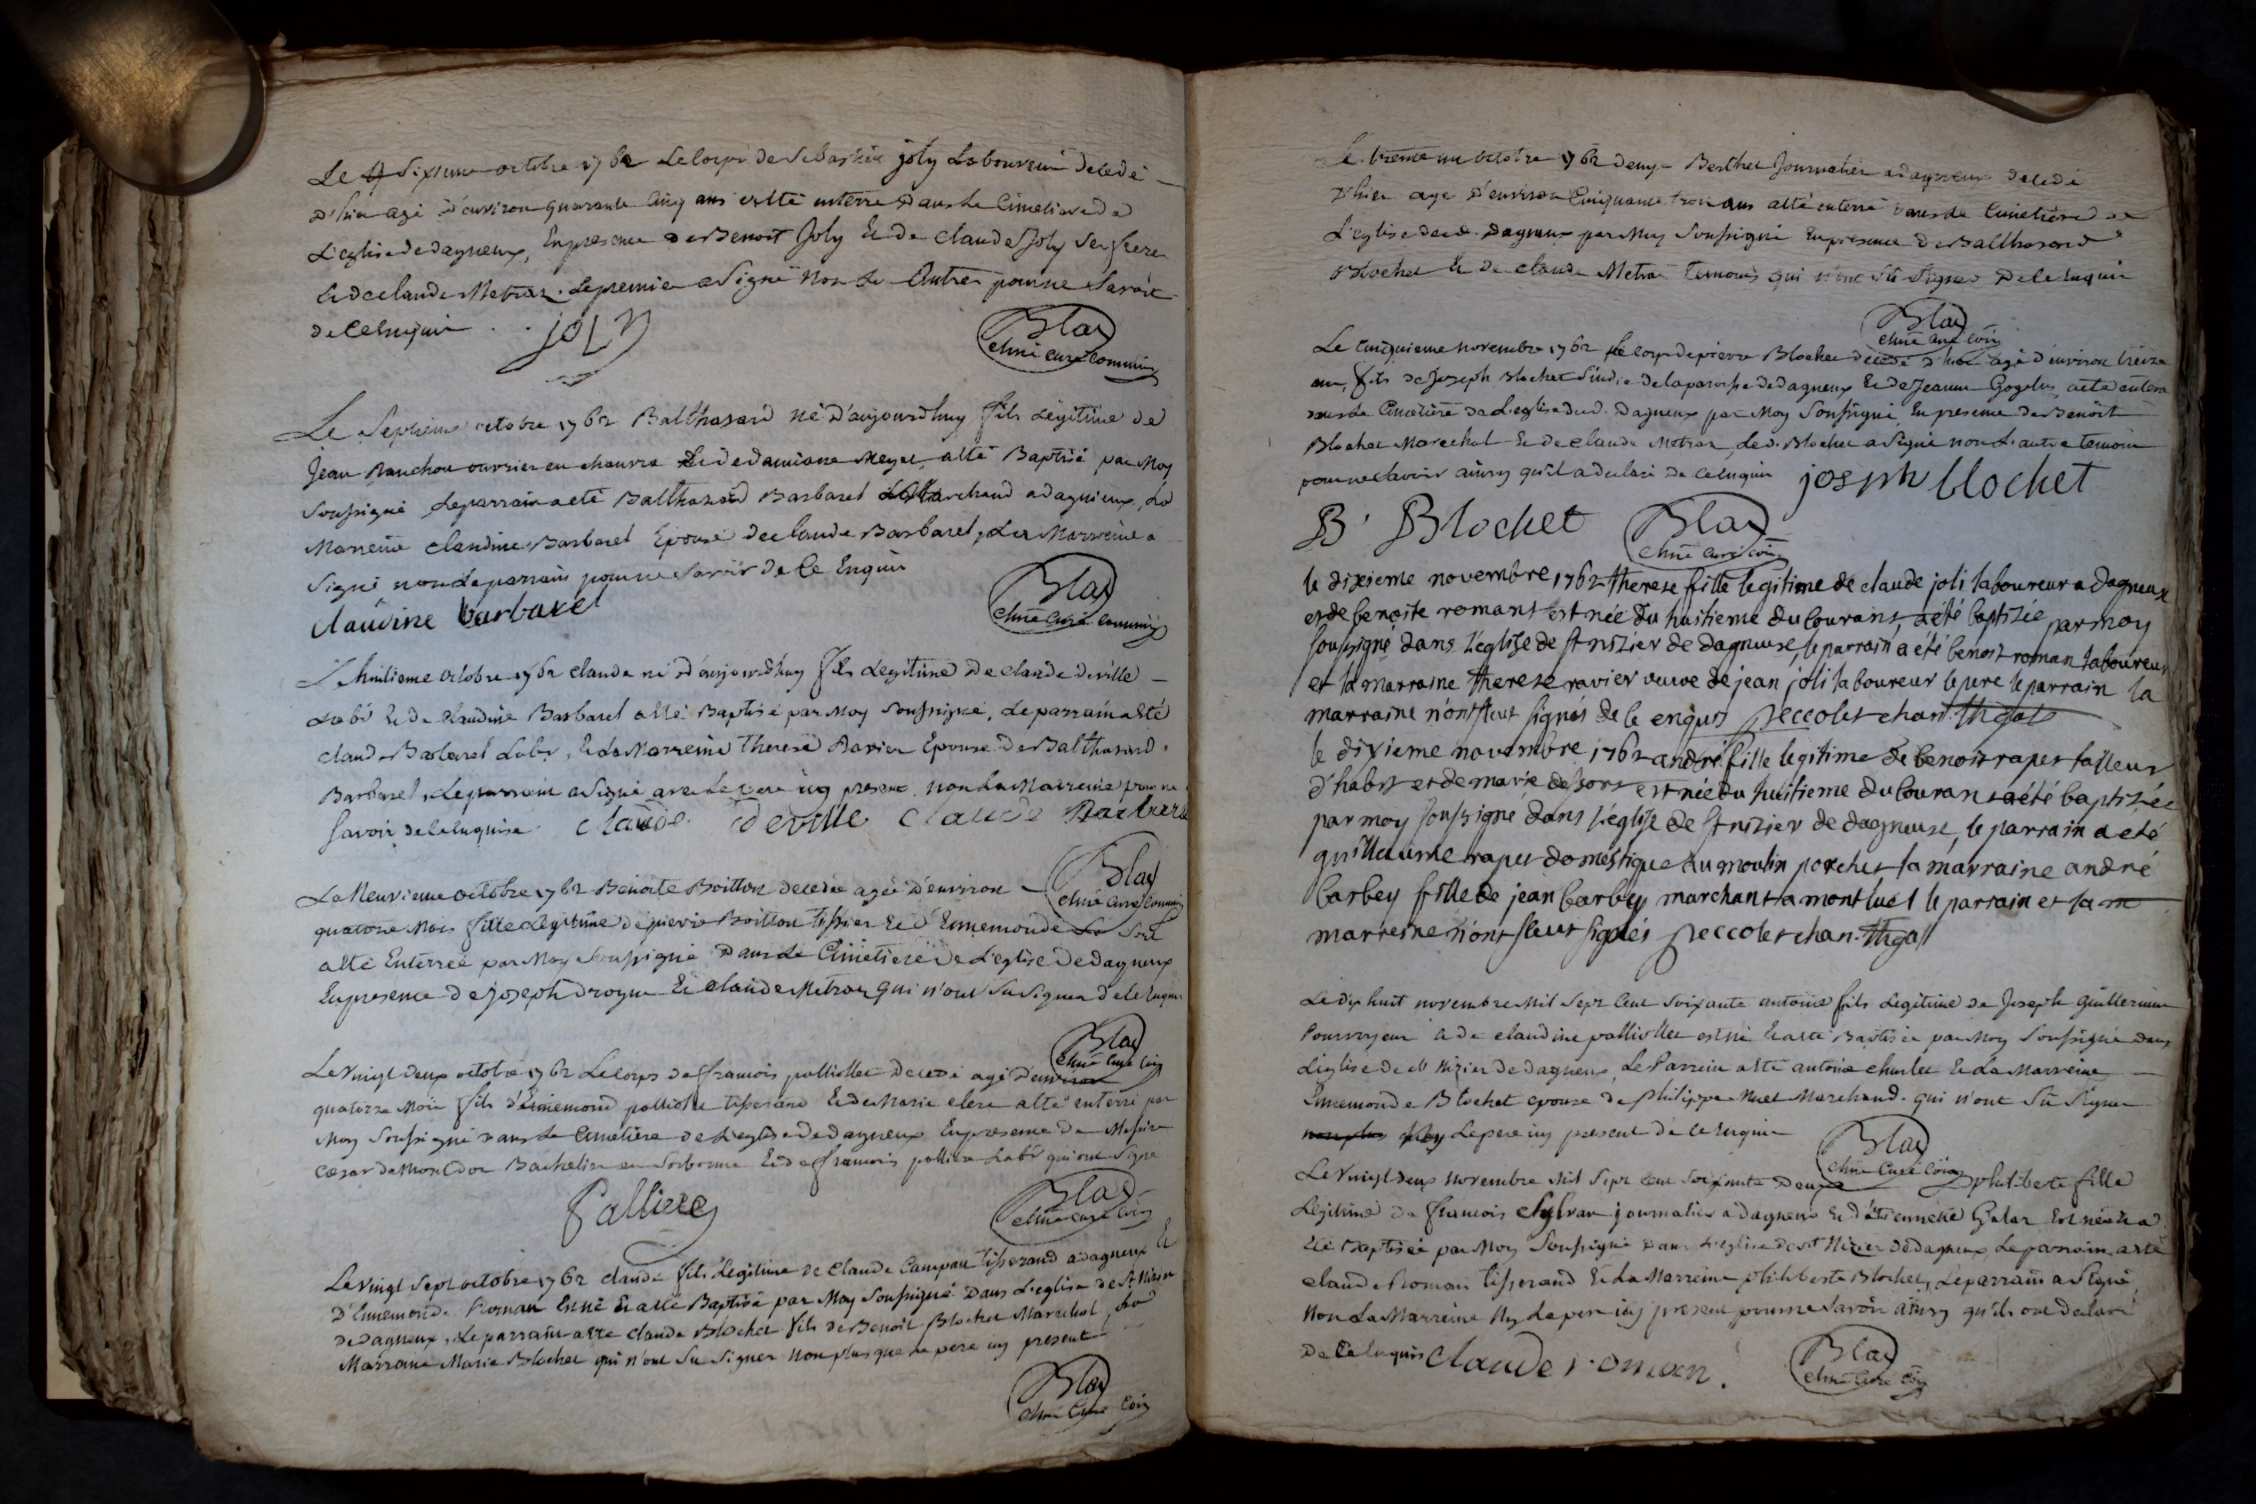 Le sixieme octobre 1762 Le corps de Sebastien joly Laboureur decedé
D'hier agé D'environ quarante Cinq ans esté enterré Dans Le Cimetiere de
L'eglise de dagneux, En presence de Benoit Joly Et de claude Joly Ses freres
Et de claude Metraz. Le premier a Signé Non Les Autres pour ne Savoir
de Ce Enquis
joly
Blay
chne Curé Commis
Le Septieme octobre 1762 Balthasard né D'aujourdhuy fils Légitime de
Jean Ranchon ouvrier en chanvre Et de damiane Meyet, a Eté Baptisé par Moy
Soussigné Le parrain a eté Balthazard Barbaret Marchand a dagnieux, La
Marreine claudine Barbaret Epouse de claude Barbaret, La Marreine a
Signé, non Le parrain pour ne Savoir de Ce Enquis
claudine barbaret
Blay
chne Curé Commis
Le huitieme octobre 1762 claude né D'aujourdhuy fils Legitime De claude deville
Labr Et De claudine Barbaret a Eté Baptisé par Moy Soussigné, Le parrain a Eté
claude Barbaret Labr, Et La Marreine Therese Ravier Epouse De Balthasard
Barbaret, Le parrain a Signé avec Le pere icy present non La Marreine pour ne
Savoir de Ce Enquise claude deville claude Barbaret
Blay
chne Curé Commis
Le Neuvieme octobre 1762 Benoite Boitton decedée agée D'environ
quatorze Mois fille Légitime de pierre Boitton tissier Et D'Ennemonde
a Eté Enterrée par Moy Soussigné Dans Le Cimetiere De L'eglise De dagneux
En presence De Joseph Drogue Et claude Metraz qui n'ont Su Signer de Ce Enquis
Blay
chne Curé Cõis
Le Vingt deux octobre 1762 Le Corps de françois palliollet decedé agé D'environ
quatorze Mois fils d'Ennemond palliollet tisserand Et de Marie clerc a Eté enterré par
Moy Soussigné Dans Le Cimetiere de L'eglise De dagneux En presence De Messire
Cœsar de Montdor Bachelier en Sorbonne Et de françois Labr qui ont Signé
Palliere
Blay
chne Curé Cõis
Le Vingt Sept octobre 1762 claude fils Legitime de Claude Campan tisserand a dagneux Et
D'Ennemonde Roman Est né Et a Eté Baptisé par Moy Soussigné Dans L'eglise de St Nizier
de Dagneux, Le parrain a Eté claude Blochet fils de Benoit Blochet Marechal, La
Marraine Marie Blochet qui n'ont Su Signer Non plus que Le pere icy present
Blay
chne Curé Cõis
Le trente un octobre 1762 denys Berthet Journalier a dagneux decedé
D'hier agé D'environ Cinquante trois ans a Eté enterré Dans Le Cimetiere de
L'eglise de dagneux par Moy Soussigné En presence De Balthazard
Blochet Et De claude Metraz temoins qui n'ont Sû Signer De Ce Enquis
Blay
chne Curé Cõis
Le Cinquieme novembre 1762 Le corps de pierre Blochet decedé d'hier agé d'environ treize
ans, fils de Joseph Blochet Sindic de la paroisse de dagneux Et de Jeanne a eté enterré
dans Le Cimetiere de L'eglise dud. Dagneux par Moy Soussigné En presence De Benoit
Blochet Marechal Et de claude Metraz, Le d. Blochet a Signé non L'autre temoin
pour ne Savoir ainsy qu'il a declaré de Ce Enquis joseph blochet
B. Blochet
Blay
chne Curé Cõis
le dixieme novembre 1762 therese fille legitime de claude joli laboureur a dagneux
et de benoite romans est née du huitieme du courans a été baptisée par moy
soussigné dans l'eglise de st nizier de dagneuse, le parrain a été benoit roman laboureur
et la marraine therese ravier veuve de jean joli laboureur le pere le parrain la
marraine n'ont sceut signes de ce enquis peccolet chan.
le dixieme novembre 1762 andré fille legitime de benoit rapet tailleur
d'habit et de marie est née du huitieme du courans a été baptisée
par moy soussigné dans l'eglise de st nizier de dagneuse, le parrain a eté
guillaume rapet domestique au moulin porchet la marraine andré
barbey fille de jean barbey marchant a montluel le parrain et la
marreine n'ont sceut signés peccolet chan.
Le dix huit novembre Mil Sept Cent Soixante antoine fils Legitime de Joseph Guillermin
Pourvoyeur Et de claudine palliollet est né Et a Eté Baptisée par Moy Soussigné dans
L'eglise de st Nizier de dagneux, Le Parrain a Eté antoine Et La Marreine
Ennemonde Blochet epouse de philippe Marchand. qui n'ont Sû Signer
non plus Le pere icy present de Ce Enquis
Blay
chne Curé Cõis
Le Vingt deux novembre Mil Sept cent Soixante Deux philiberte fille
Légitime de françois journalier a dagneux Et d'Etiennette Est née Et a
Eté Baptisée par Moy Soussigné Dans L'eglise de st Nizier de dagneux, Le parrain a Eté
claude Roman tisserand Et La Marreine philiberte Blochet, Le parrain a Signé,
Non La Marreine Ny Le pere icy present pour ne Savoir ainsy qu'ils ont declaré
De Ce Enquis claude roman.
Blay
chne Curé Cõis